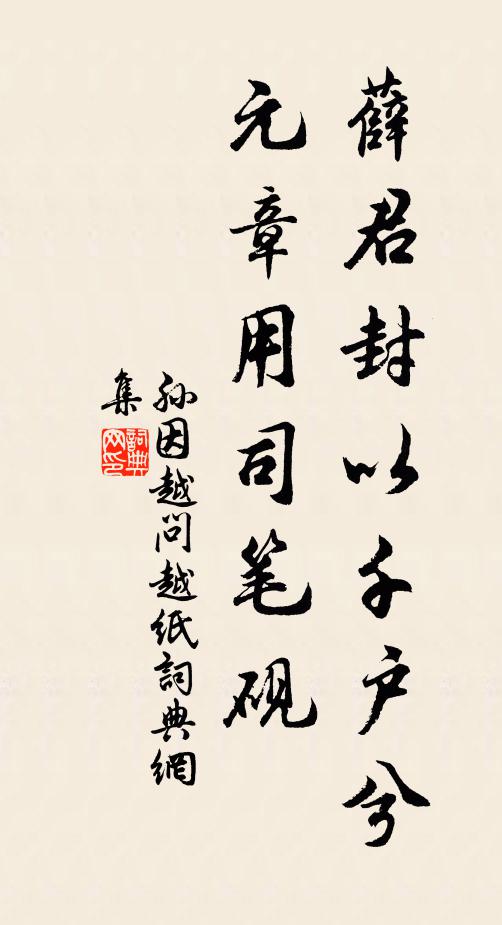 薛君封以千户兮
元章用司笔砚
孙因越问越纸詞典網
集
詞典网印